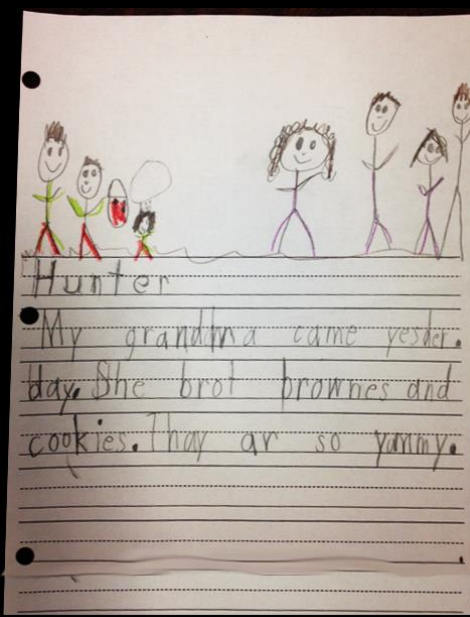 Hunter
My grandma came yester.
day. She brot brownes and
cookies. Thay ar so yummy.